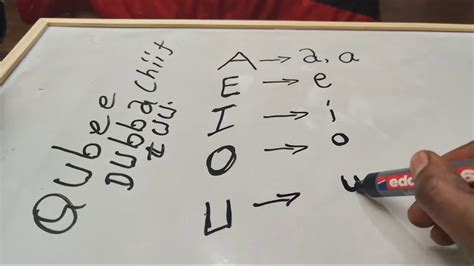 Qubee
Dubbachiift
uu.
A → a, a
E → e
I → i
O → o
U → u
edd